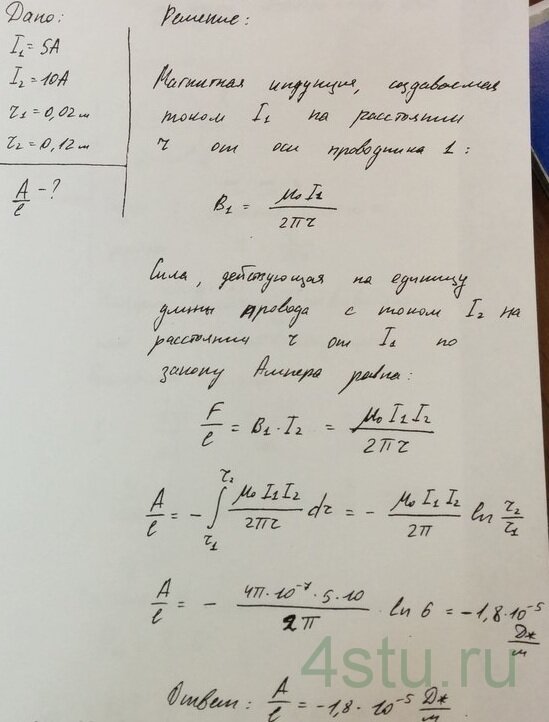 Дано:
I₁ = 5А
I₂ = 10А
τ₁ = 0,02 м
τ₂ = 0,12 м
A/ℓ - ?
Решение:
Магнитная индукция, создаваемая
током I₁ на расстоянии
τ от оси проводника 1:
B₁ = μ₀I₁/2πτ
Сила, действующая на единицу
длины провода с током I₂ на
расстоянии τ от I₁ по
закону Ампера равна:
F/ℓ = B₁·I₂ = μ₀I₁I₂/2πτ
A/ℓ = - ∫ τ₁ τ₂ μ₀I₁I₂/2πτ dτ = - μ₀I₁I₂/2π ln τ₂/τ₁
A/ℓ = - 4π·10⁻⁷·5·10/2π · ln 6 = -1,8·10⁻⁵ Дж/м
4stu.ru
Ответ: A/ℓ = -1,8·10⁻⁵ Дж/м.